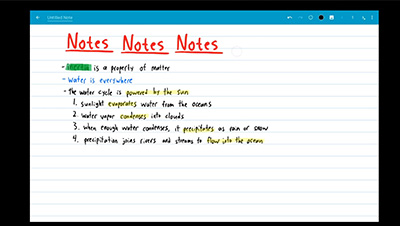 Untitled Note
Notes Notes Notes
- inertia is a property of matter
- Water is everywhere
- The water cycle is powered by the sun
1. sunlight evaporates water from the oceans
2. water vapor condenses into clouds
3. when enough water condenses, it precipitates as rain or snow
4. precipitation joins rivers and streams to flow into the ocean